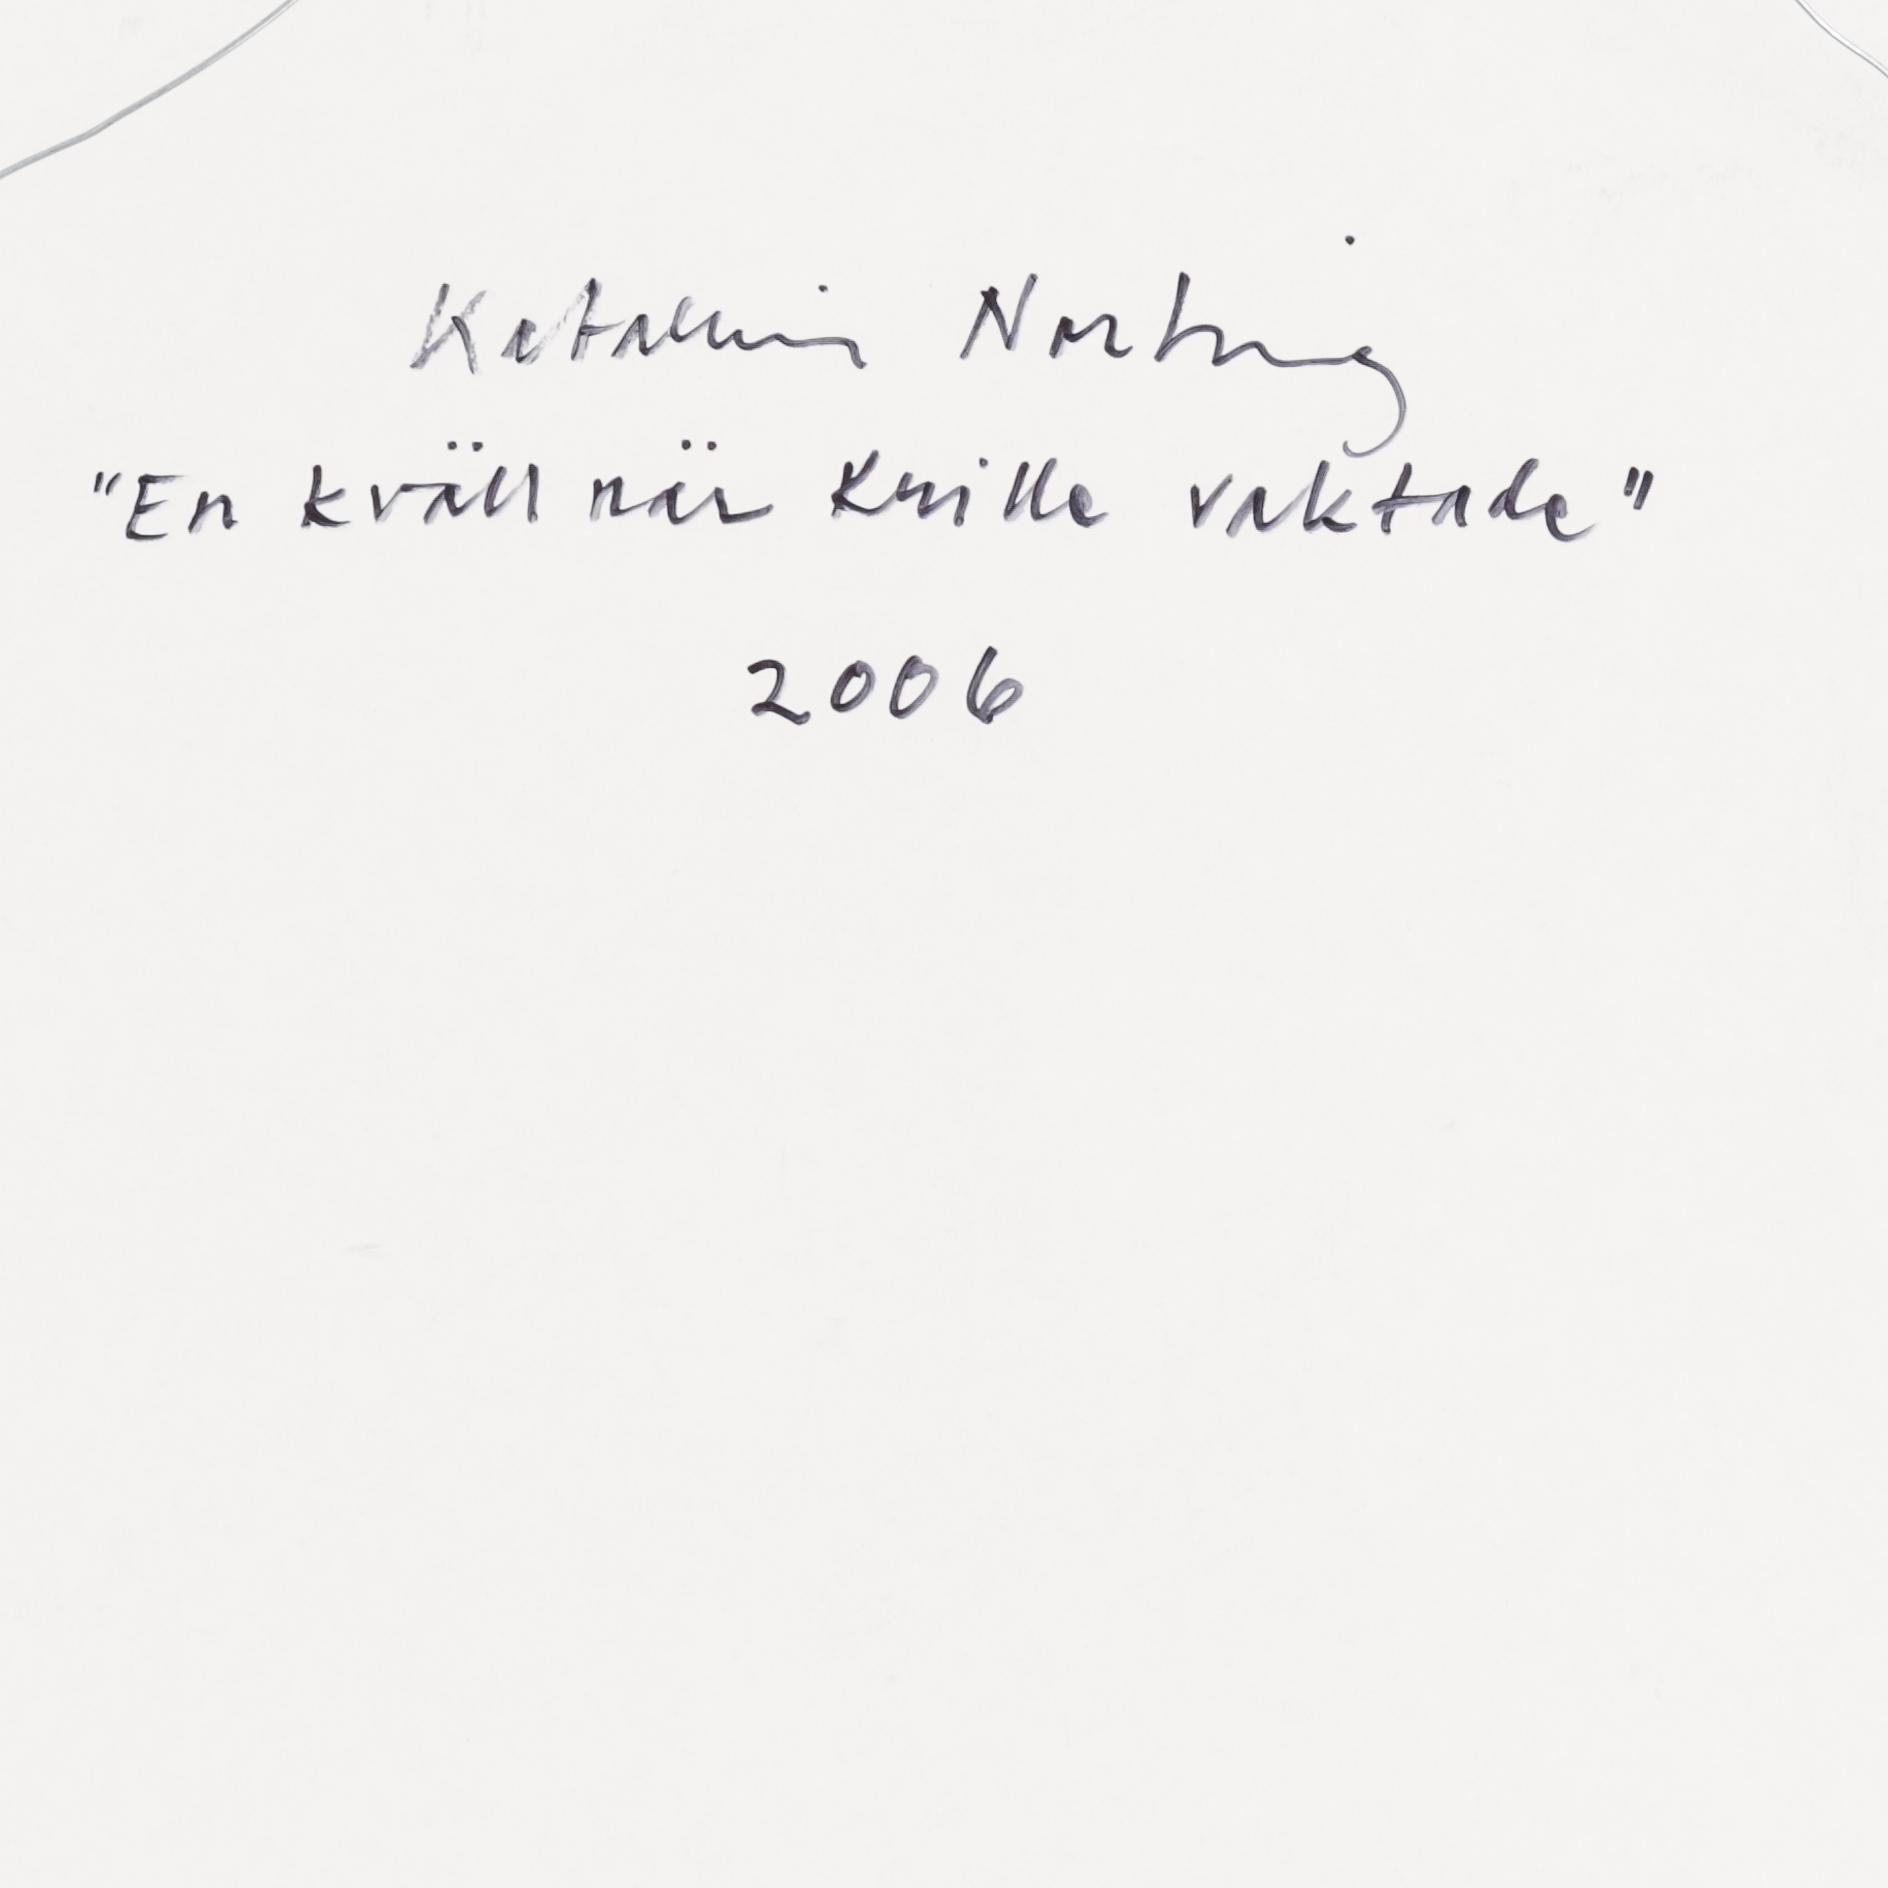 Katalin Norling
"En kväll när Knille vaktade"
2006